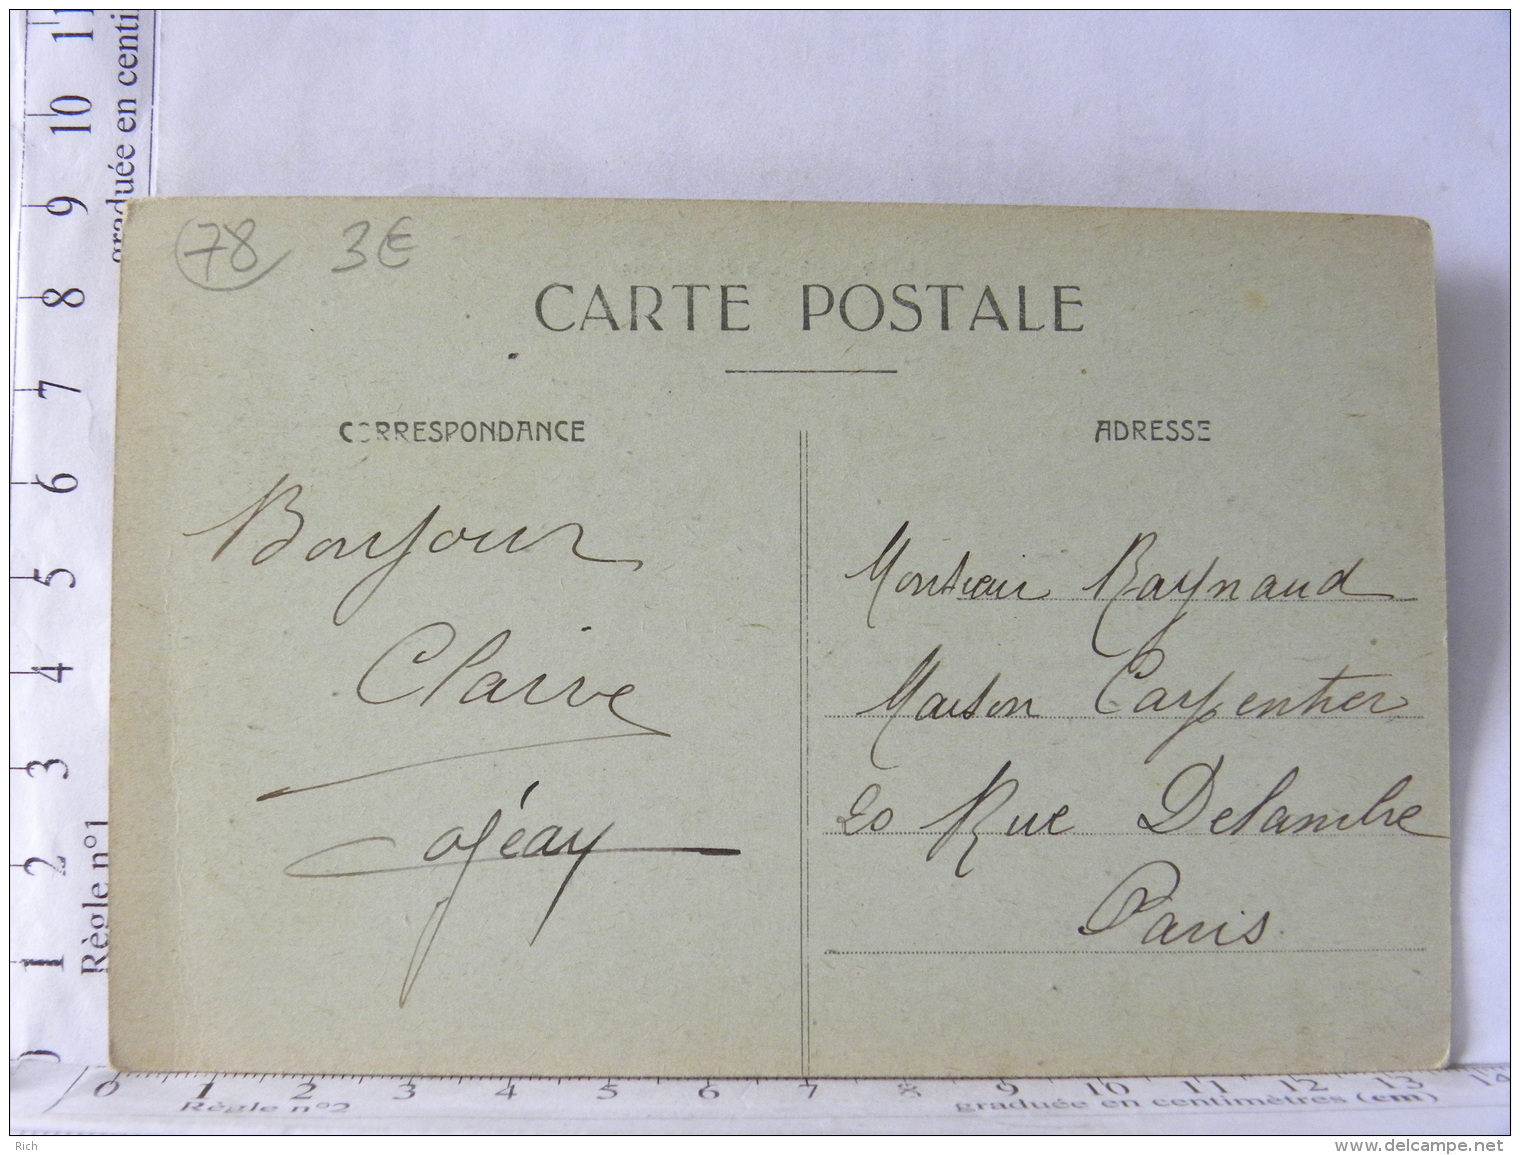 78 3€
CARTE POSTALE
CORRESPONDANCE
ADRESSE
Bonjour
Claire
Monsieur Raynaud
Maison Carpentier
20 Rue Delambre
Paris
Règle n°1
graduée en centi
0 1 2 3 4 5 6 7 8 9 10 11
0 1 2 3 4 5 6 7 8 9 10 11 12 13 14
Règle n°2 graduée en centimètres (cm)
Rich
www.delcampe.net